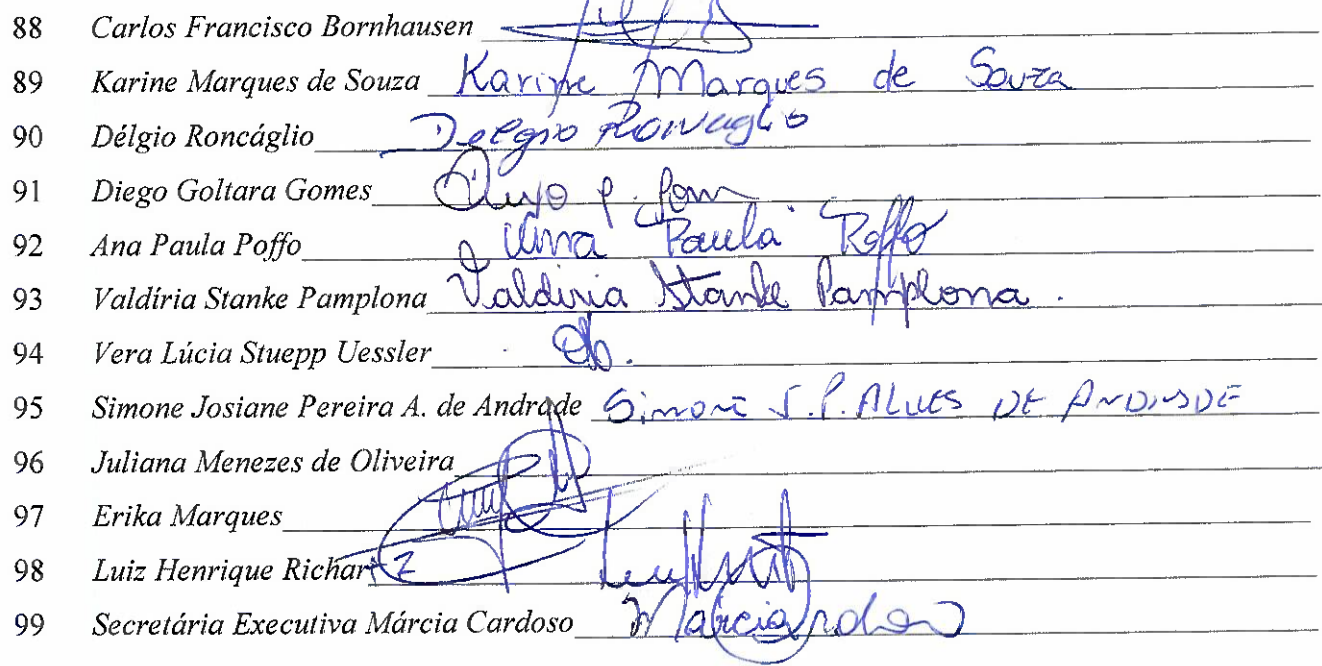 88 Carlos Francisco Bornhausen
89 Karine Marques de Souza Karine Marques de Souza
90 Délgio Roncáglio Delgio Roncaglio
91 Diego Goltara Gomes
92 Ana Paula Poffo Ana Paula Poffo
93 Valdíria Stanke Pamplona Valdiria Stanke Pamplona.
94 Vera Lúcia Stuepp Uessler
95 Simone Josiane Pereira A. de Andrade Simone J.P. ALVES DE ANDRADE
96 Juliana Menezes de Oliveira
97 Erika Marques
98 Luiz Henrique Richartz
99 Secretária Executiva Márcia Cardoso Marcia